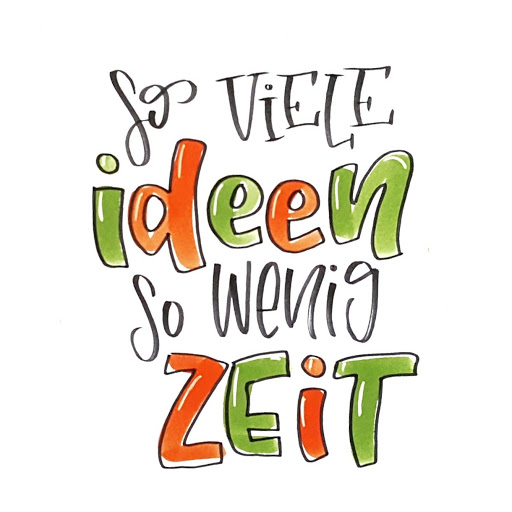 So VIELE
ideen
so wenig
ZEiT